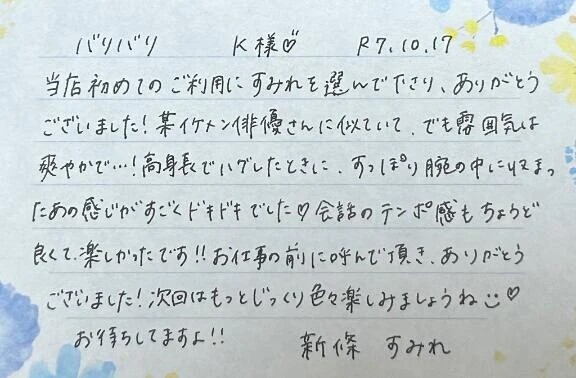 バリバリ K様♡ R7.10.17
当店初めてのご利用にすみれを選んで下さり、ありがとう
ございました!某イケメン俳優さんに似ていて、でも雰囲気は
爽やかで…!高身長でハグしたときに、すっぽり腕の中に収まっ
たあの感じがすごくドキドキでした♡会話のテンポ感もちょうど
良くて、楽しかったです!!お仕事の前に呼んで頂き、ありがとう
ございました!次回はもっとじっくり色々楽しみましょうね☺♡
お待ちしてますよ!!
新條 すみれ